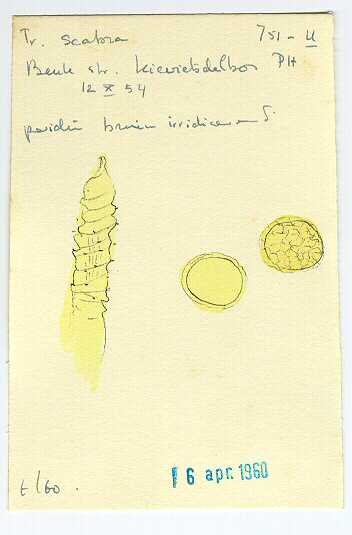 Tr. scabra 751 - U
Beuk str. Kievietsdelbos PH
12 X 54
peridie bruin irridicerend
t/60.
16 apr. 1960